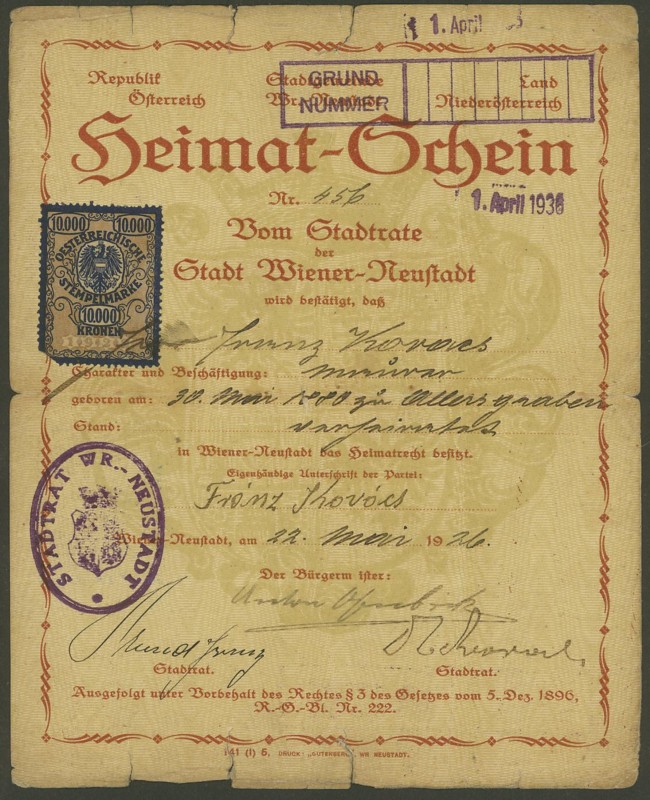 1. April
Republik Österreich
Stadtgemeinde Wr. Neustadt
Land Niederösterreich
GRUND NUMMER
Heimat-Schein
Nr. 456
1. April 1938
Vom Stadtrate
der
Stadt Wiener-Neustadt
wird bestätigt, daß
10.000 10.000
OESTERREICHISCHE
STEMPELMARKE
10.000
KRONEN
Franz Kovacs
Charakter und Beschäftigung: Maurer
geboren am: 30. Mai 1880 zu Allersgraben
Stand: verheiratet
in Wiener-Neustadt das Heimatrecht besitzt.
Eigenhändige Unterschrift der Partei:
Fránz Kovócs
STADTRAT WR.-NEUSTADT
Wiener-Neustadt, am 22. Mai 1926.
Der Bürgermeister:
Anton Ofenböck
Stadtrat. Stadtrat.
Ausgefolgt unter Vorbehalt des Rechtes § 3 des Gesetzes vom 5. Dez. 1896,
R.-G.-Bl. Nr. 222.
141 (I) 6, DRUCK: „GUTENBERG", WR NEUSTADT.